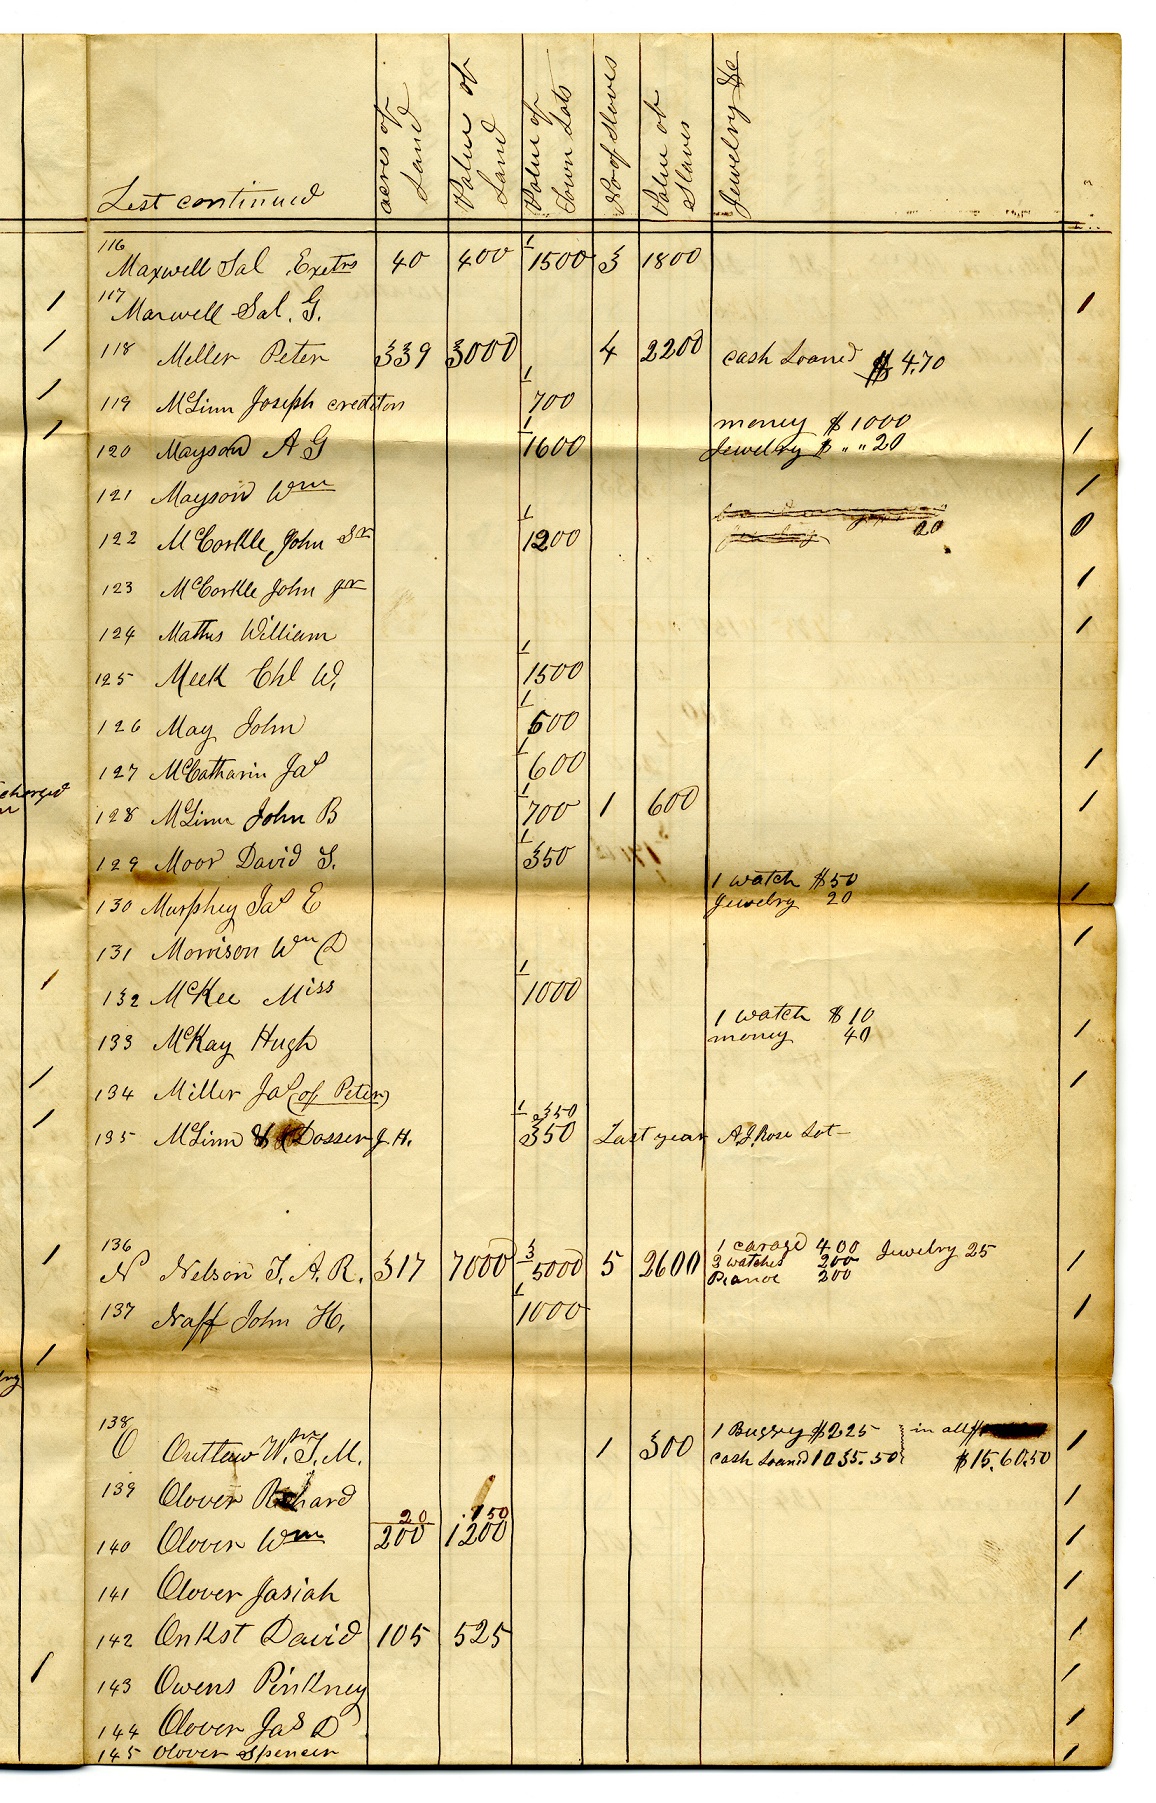 List continued
acres of Land
Value of Land
Value of Town Lots
No of Slaves
Value of Slaves
Jewelry &c
116 Maxwell Sal Exetrs 40 400 1 1500 3 1800
117 Maxwell Sal. G. 1
118 Meller Peter 339 3000 4 2200 cash Loaned $4.70
119 McLinn Joseph crediton 1 700
money $1000
120 Mayson A G 1 1600 Jewelry $ " " 20 1
121 Mayson Wm 1
122 McCorkle John Sr 1 1200 20 0
123 McCorkle John jr 1
124 Mathis William 1
125 Meek Chl W. 1 1500
126 May John 1 500
127 McCatharin Jas 1 600 1
128 McLinn John B 1 700 1 600 1
129 Moor David S. 1 350
1 watch $50
130 Murphey Jas E Jewelry 20 1
131 Morrison Wm D 1
132 McKee Miss 1 1000
1 watch $10
133 McKay Hugh money 40 1
134 Miller Jas (of Peter) 1
1 350
135 McLinn & Dosser J. H. 350 Last year A J Rose Lot
136 1 carage 400 Jewelry 25
N Nelson T. A. R. 317 7000 3 5000 5 2600 3 watches 200 1
Pianoe 200
137 Naff John H. 1 1000 1
138 1 Buggy $225 in all $
O Outlaw Wm T. M. 1 300 cash Loaned 1035.50 $15.60.50 1
139 Olover Richard 1
20 150
140 Olover Wm 200 1200 1
141 Olover Jasiah 1
142 Onkst David 105 525 1
143 Owens Pinkney 1
144 Olover Jas D 1
145 Olover Spencer 1